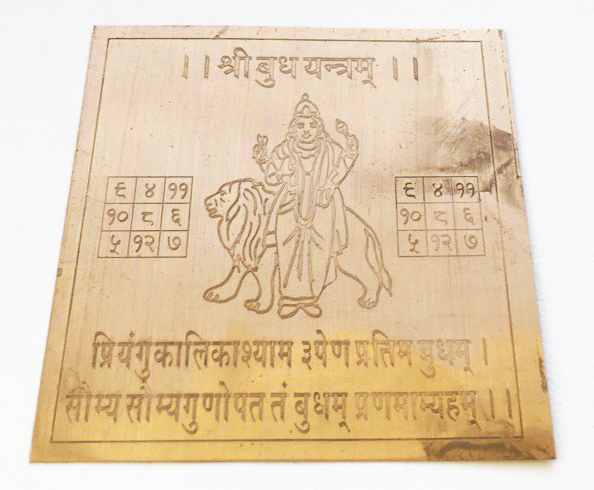 ।। श्री बुध यन्त्रम् ।।
९ ४ ११
१० ८ ६
५ १२ ७
९ ४ ११
१० ८ ६
५ १२ ७
प्रियंगुकालिकाश्याम रुपेण प्रतिम बुधम् ।
सौम्य सौम्यगुणोपत तं बुधम् प्रणमाम्यहम् ।।